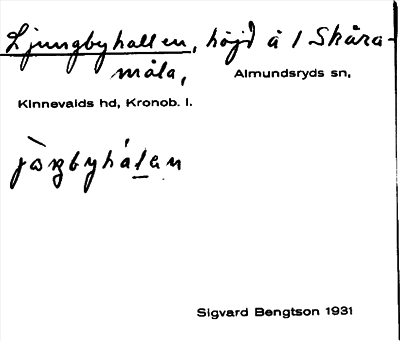 Ljungbyhallen, höjd å 1 Skåra-
måla, Almundsryds sn,
Kinnevalds hd, Kronob. l.
jòŋbyhálan
Sigvard Bengtson 1931